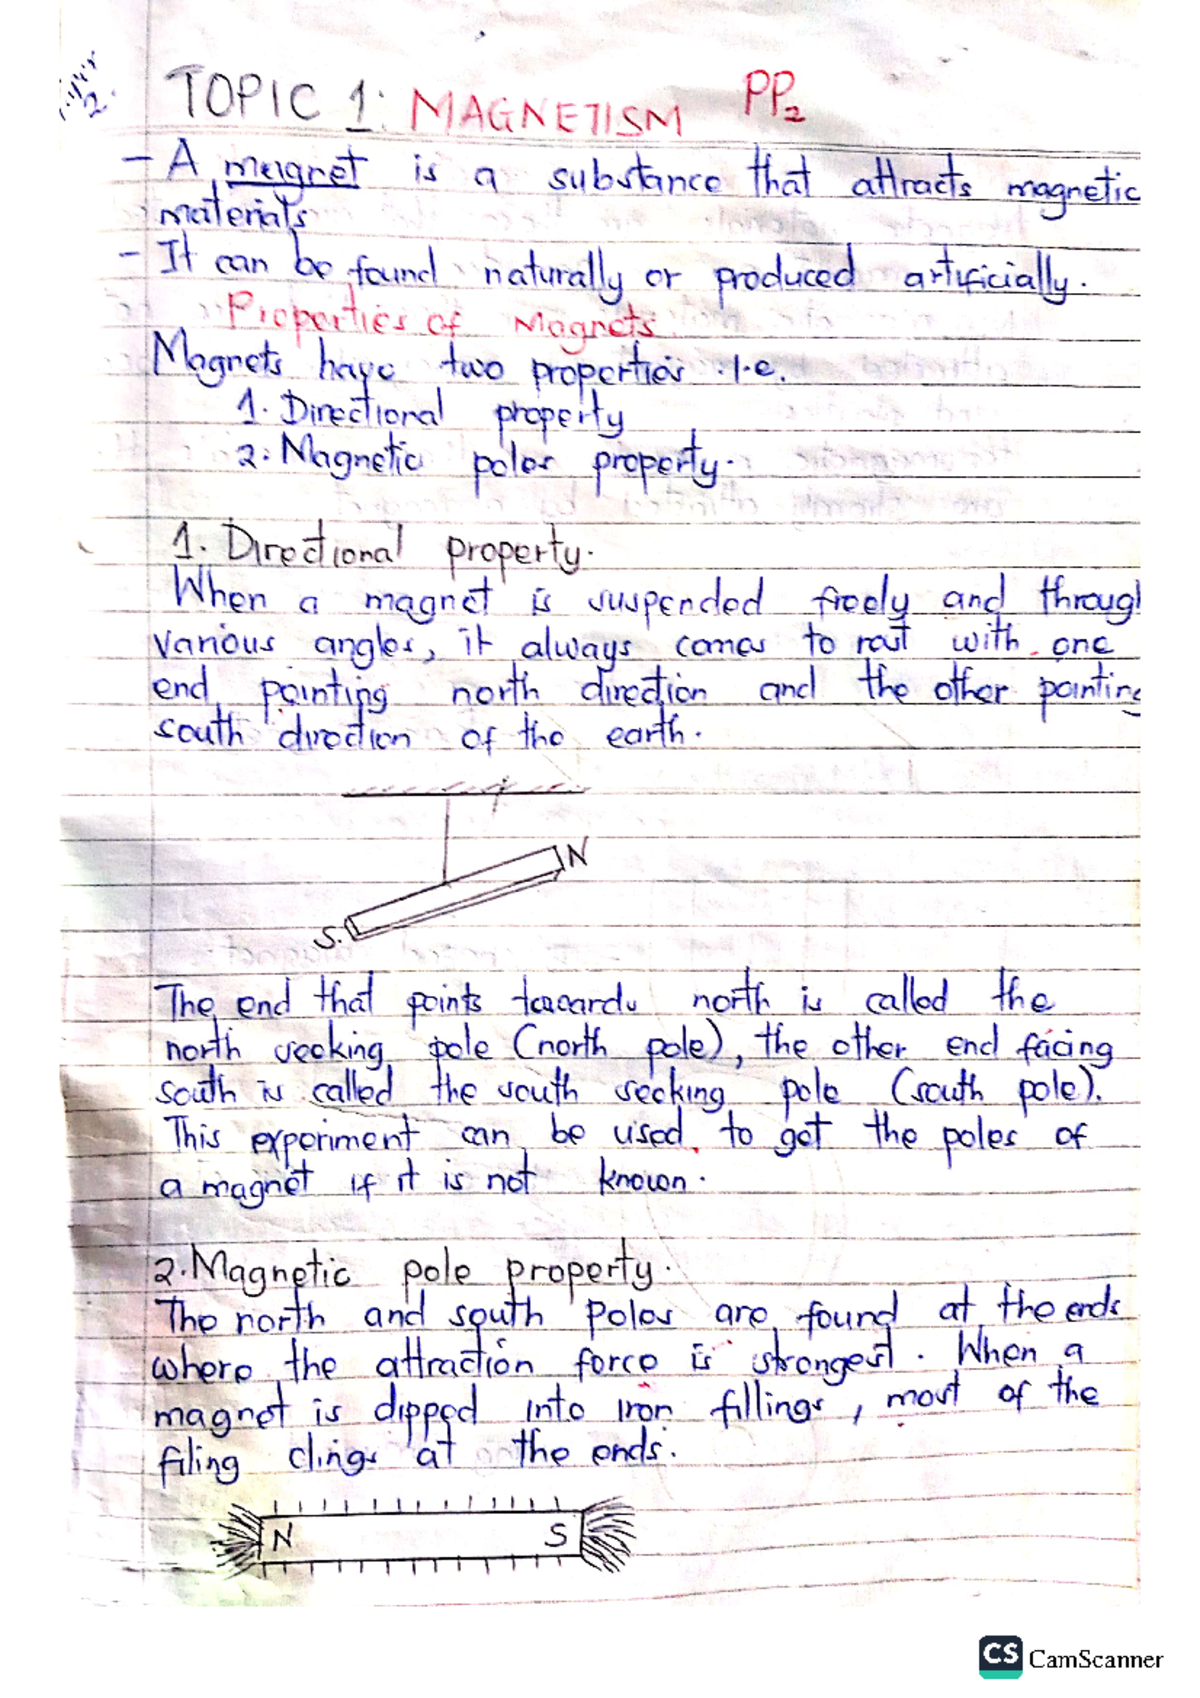 TOPIC 1: MAGNETISM PP2
- A magnet is a substance that attracts magnetic
materials
- It can be found naturally or produced artificially.
Properties of Magnets
Magnets have two properties i.e.
1. Directional property
2. Magnetic poles property.
1. Directional property.
When a magnet is suspended freely and through
various angles, it always comes to rest with one
end pointing north direction and the other pointing
south direction of the earth.
N
S.
The end that points towards north is called the
north seeking pole (north pole), the other end facing
south is called the south seeking pole (south pole).
This experiment can be used to get the poles of
a magnet if it is not known.
2. Magnetic pole property.
The north and south Poles are found at the ends
where the attraction force is strongest. When a
magnet is dipped into iron fillings, most of the
filing clings at the ends.
N S
CS CamScanner